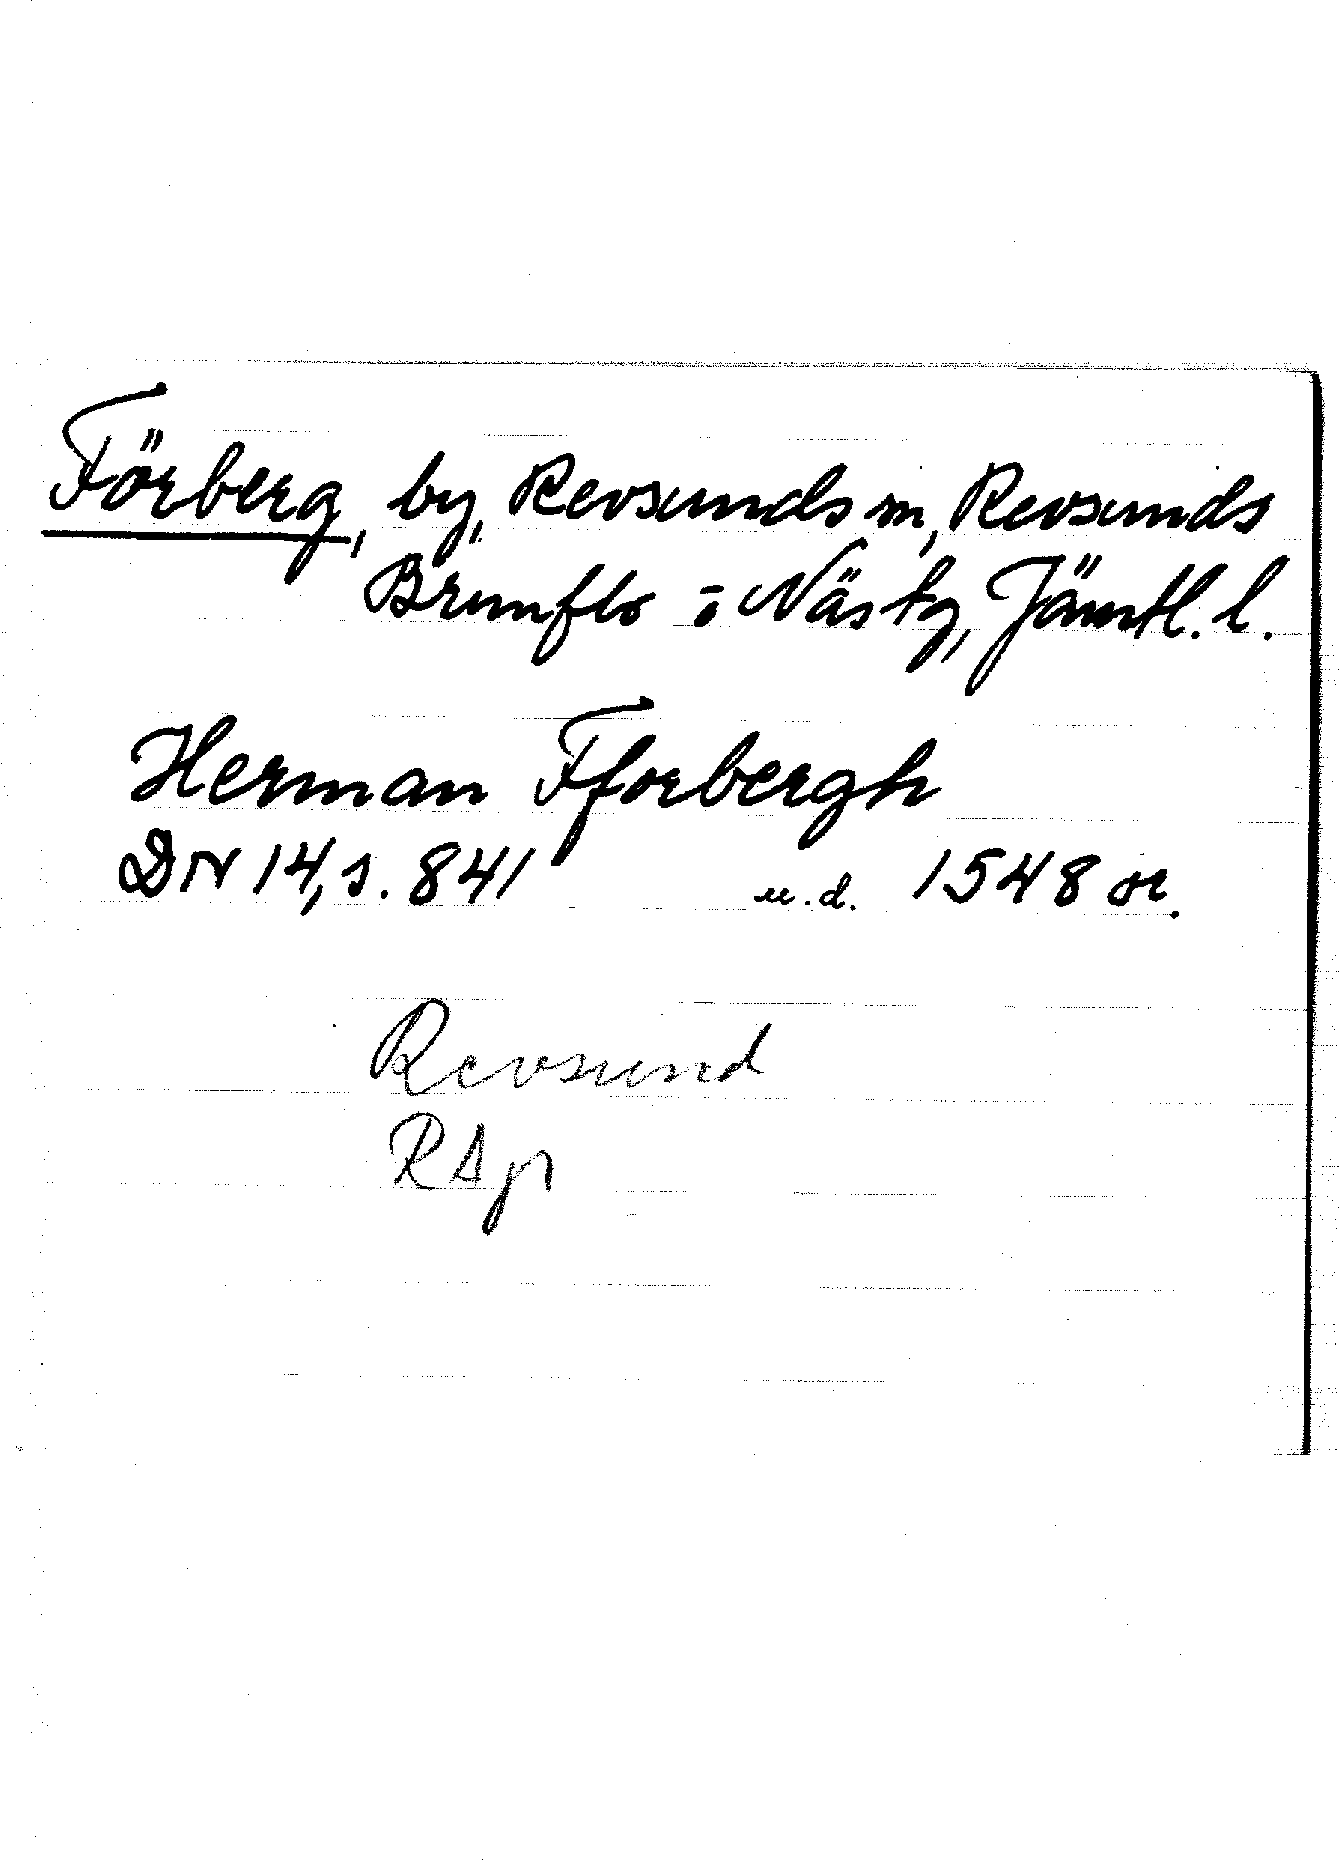 Förberg, by, Revsunds sn, Revsunds
Brunflo o Näs tg, Jämtl. l.
Herman Fforbergh
DN 14, s. 841 u.d. 1548 or.
Revsund
RApr